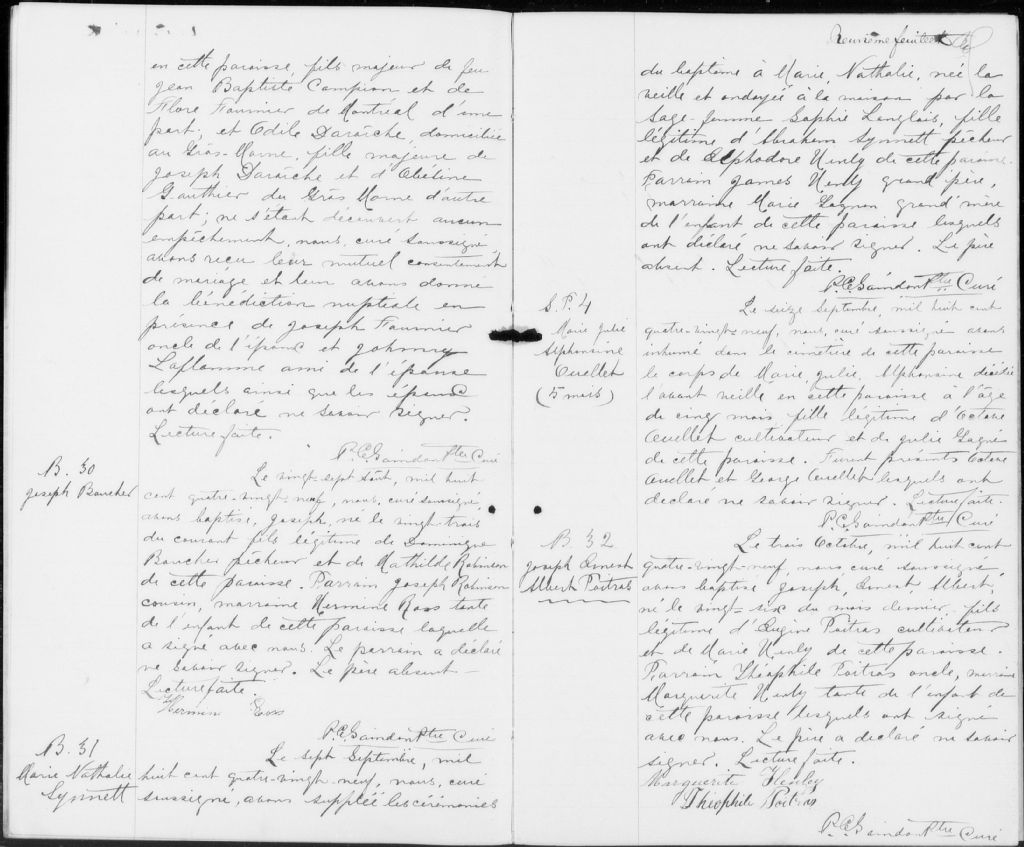 en cette paroisse, fils majeur de feu
Jean Baptiste Campion et de
Flore Fournier de Montréal d'une
part; et Odile Daraîche, domiciliée
au Gros-Morne, fille majeure de
Joseph Daraîche et d'
Gauthier du Gros Morne d'autre
part; ne s'étant découvert aucun
empêchement, nous, curé soussigné,
avons reçu leur mutuel consentement
de mariage et leur avons donné
la bénédiction nuptiale en
présence de Joseph Fournier
oncle de l'époux et Johnny
Laflamme ami de l'épouse
lesquels ainsi que les époux
ont déclaré ne savoir signer.
Lecture faite.
P.C. Gaindon Ptre Curé
B. 30
Joseph Boucher
Le vingt-sept Août, mil huit
cent quatre-vingt-neuf, nous, curé soussigné,
avons baptisé, Joseph, né le vingt-trois
du courant fils légitime de Domingue
Boucher pêcheur et de Mathilde Robinson
de cette paroisse. Parrain Joseph Robinson
cousin, marraine Hermine Ross tante
de l'enfant de cette paroisse laquelle
a signé avec nous. Le parrain a déclaré
ne savoir signer. Le père absent —
Lecture faite.
Hermin Ross
P.C. Gaindon Ptre Curé
B. 31
Marie Nathalie
Synnett
Le sept Septembre, mil
huit cent quatre-vingt-neuf, nous, curé
soussigné, avons suppléé les cérémonies
Neuvième feuillet
du baptême à Marie, Nathalie, née la
veille et ondoyée à la maison par la
sage-femme Sophie Langlais, fille
légitime d'Abraham Synnett pêcheur
et de Elphodore Henly de cette paroisse.
Parrain James Henly grand père,
marraine Marie Gagnon grand'mère
de l'enfant de cette paroisse lesquels
ont déclaré ne savoir signer. Le père
absent. Lecture faite.
P.C. Gaindon Ptre Curé
S. P. 4
Marie Julie
Alphonsine
Ouellet
(5 mois)
Le seize Septembre, mil huit cent
quatre-vingt-neuf, nous, curé soussigné avons
inhumé dans le cimetière de cette paroisse
le corps de Marie, Julie, Alphonsine décédée
l'avant veille en cette paroisse à l'âge
de cinq mois fille légitime d'Octave
Ouellet cultivateur et de Julie Gagné
de cette paroisse. Furent présents Octave
Ouellet et George Ouellet lesquels ont
déclaré ne savoir signer. Lecture faite.
P.C. Gaindon Ptre Curé
B. 32
Joseph Ernest
Albert Poitras
Le trois Octobre, mil huit cent
quatre-vingt-neuf, nous curé soussigné
avons baptisé Joseph, Ernest, Albert,
né le vingt-six du mois dernier, fils
légitime d'Eugène Poitras cultivateur
et de Marie Henly de cette paroisse.
Parrain Théophile Poitras oncle, marraine
Marguerite Henly tante de l'enfant de
cette paroisse lesquels ont signé
avec nous. Le père a déclaré ne savoir
signer. Lecture faite.
Marguerite Henley
Théophile Poitras
P.C. Gaindon Ptre Curé